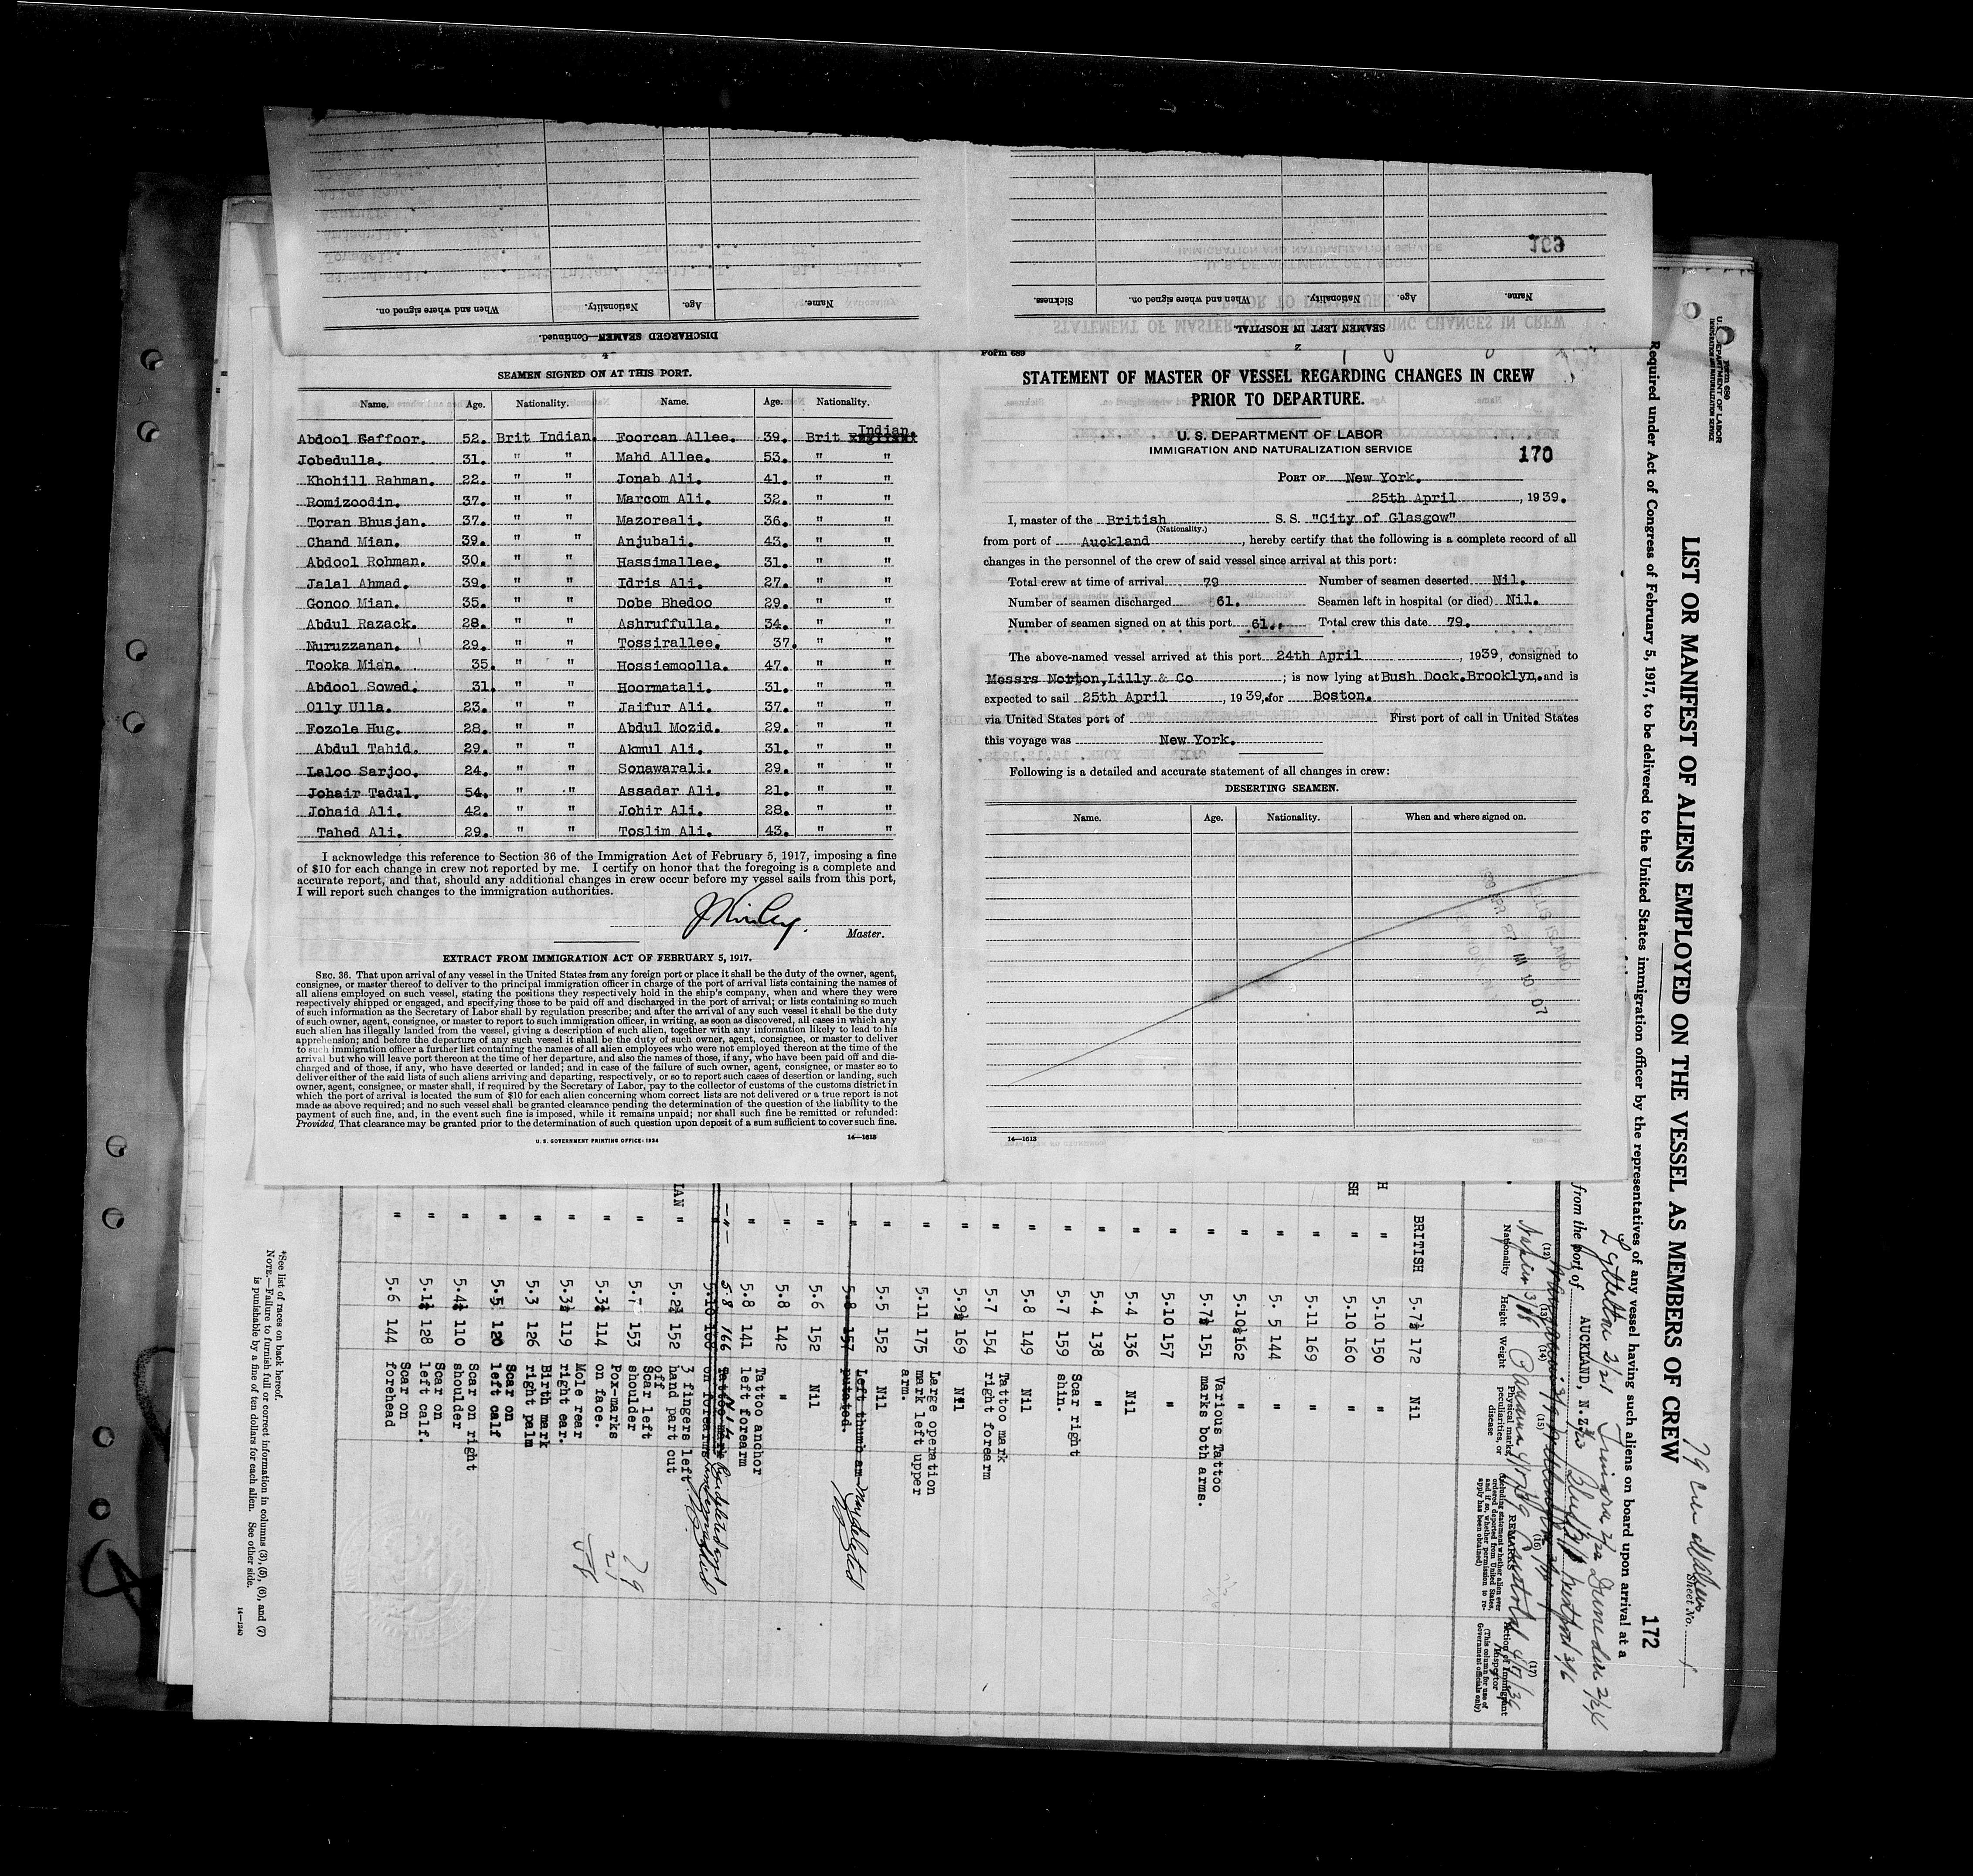 DISCHARGED SEAMEN—Continued.
Name. Age. Nationality. When and where signed on.
2
SEAMEN LEFT IN HOSPITAL.
Name. Age. Nationality. When and where signed on. Sickness.
169
4
SEAMEN SIGNED ON AT THIS PORT.
Name. Age. Nationality. Name. Age. Nationality.
Abdool Gaffoor. 52. Brit Indian. Foorcan Allee. 39. Brit Indian.
Jobedulla. 31. " " Mahd Allee. 53. " "
Khohill Rahman. 22. " " Jonab Ali. 41. " "
Romizoodin. 37. " " Marcom Ali. 32. " "
Toran Bhusjan. 37. " " Mazoreali. 36. " "
Chand Mian. 39. " " Anjubali. 43. " "
Abdool Rohman. 30. " " Hassimallee. 31. " "
Jalal Ahmad. 39. " " Idris Ali. 27. " "
Gonoo Mian. 35. " " Dobe Bhedoo 29. " "
Abdul Razack. 28. " " Ashruffulla. 34. " "
Nuruzzanan. 29. " " Tossirallee. 37. " "
Tooka Mian. 35. " " Hossiemoolla. 47. " "
Abdool Sowed. 31. " " Hoormatali. 31. " "
Olly Ulla. 23. " " Jaifur Ali. 37. " "
Fozole Hug. 28. " " Abdul Mozid. 29. " "
Abdul Tahid. 29. " " Akmul Ali. 31. " "
Laloo Sarjoo. 24. " " Sonawarali. 29. " "
Johair Tadul. 54. " " Assadar Ali. 21. " "
Johaid Ali. 42. " " Johir Ali. 28. " "
Tahed Ali. 29. " " Toslim Ali. 43. " "
I acknowledge this reference to Section 36 of the Immigration Act of February 5, 1917, imposing a fine
of $10 for each change in crew not reported by me. I certify on honor that the foregoing is a complete and
accurate report, and that, should any additional changes in crew occur before my vessel sails from this port,
I will report such changes to the immigration authorities.
Master.
EXTRACT FROM IMMIGRATION ACT OF FEBRUARY 5, 1917.
SEC. 36. That upon arrival of any vessel in the United States from any foreign port or place it shall be the duty of the owner, agent,
consignee, or master thereof to deliver to the principal immigration officer in charge of the port of arrival lists containing the names of
all aliens employed on such vessel, stating the positions they respectively hold in the ship's company, when and where they were
respectively shipped or engaged, and specifying those to be paid off and discharged in the port of arrival; or lists containing so much
of such information as the Secretary of Labor shall by regulation prescribe; and after the arrival of any such vessel it shall be the duty
of such owner, agent, consignee, or master to report to such immigration officer, in writing, as soon as discovered, all cases in which any
such alien has illegally landed from the vessel, giving a description of such alien, together with any information likely to lead to his
apprehension; and before the departure of any such vessel it shall be the duty of such owner, agent, consignee, or master to deliver
to such immigration officer a further list containing the names of all alien employees who were not employed thereon at the time of the
arrival but who will leave port thereon at the time of her departure, and also the names of those, if any, who have been paid off and dis-
charged and of those, if any, who have deserted or landed; and in case of the failure of such owner, agent, consignee, or master so to
deliver either of the said lists of such aliens arriving and departing, respectively, or so to report such cases of desertion or landing, such
owner, agent, consignee, or master shall, if required by the Secretary of Labor, pay to the collector of customs of the customs district in
which the port of arrival is located the sum of $10 for each alien concerning whom correct lists are not delivered or a true report is not
made as above required; and no such vessel shall be granted clearance pending the determination of the question of the liability to the
payment of such fine, and, in the event such fine is imposed, while it remains unpaid; nor shall such fine be remitted or refunded:
Provided, That clearance may be granted prior to the determination of such question upon deposit of a sum sufficient to cover such fine.
U. S. GOVERNMENT PRINTING OFFICE: 1934 14—1613
Form 689
STATEMENT OF MASTER OF VESSEL REGARDING CHANGES IN CREW
PRIOR TO DEPARTURE.
U. S. DEPARTMENT OF LABOR
IMMIGRATION AND NATURALIZATION SERVICE
170
PORT OF New York.
25th April, 1939.
I, master of the British S. S. "City of Glasgow"
(Nationality.)
from port of Auckland, hereby certify that the following is a complete record of all
changes in the personnel of the crew of said vessel since arrival at this port:
Total crew at time of arrival 79 Number of seamen deserted Nil.
Number of seamen discharged 61. Seamen left in hospital (or died) Nil.
Number of seamen signed on at this port 61. Total crew this date 79.
The above-named vessel arrived at this port 24th April, 1939, consigned to
Messrs Norton,Lilly & Co; is now lying at Bush Dock.Brooklyn.and is
expected to sail 25th April, 1939, for Boston.
via United States port of First port of call in United States
this voyage was New York.
Following is a detailed and accurate statement of all changes in crew:
DESERTING SEAMEN.
Name. Age. Nationality. When and where signed on.
ELLIS ISLAND
1939 APR 27 AM 10 07
14—1613
U. S. DEPARTMENT OF LABOR
IMMIGRATION AND NATURALIZATION SERVICE
Form 680
LIST OR MANIFEST OF ALIENS EMPLOYED ON THE VESSEL AS MEMBERS OF CREW
Sheet No.
172
Required under Act of Congress of February 5, 1917, to be delivered to the United States immigration officer by the representatives of any vessel having such aliens on board upon arrival at a
from the port of AUCKLAND, N.Z.
(12) (13) (14) (15) (16) (17)
Nationality Height Weight Physical marks, peculiarities, or disease REMARKS
BRITISH 5.7½ 172 Nil
" 5.10 150 "
" 5.10 160 "
" 5.11 169 "
" 5. 5 144 "
" 5.10½ 162 "
" 5.7½ 151 Various Tattoo marks both arms.
" 5.10 157 "
" 5.4 136 Nil
" 5.4 138 "
" 5.7 159 Scar right shin.
" 5.8 149 Nil
" 5.7 154 Tattoo mark right forearm
" 5.9½ 169 Nil
" 5.11 175 Large operation mark left upper arm.
" 5.5 152 Nil
" 5.8 157 Left thumb am- putated.
" 5.6 152 Nil
" 5.8 142 "
" 5.8 141 Tattoo anchor left forearm
5.8 166
" 5.2½ 152 3 fingers left hand part cut off
" 5.7 153 Scar left shoulder
" 5.3½ 114 Pox-marks on face.
" 5.3½ 119 Mole rear right ear.
" 5.3 126 Birth mark right palm
" 5.5 120 Scar on left calf
" 5.4½ 110 Scar on right shoulder
" 5.1½ 128 Scar on left calf.
" 5.6 144 Scar on forehead
*See list of races on back hereof.
NOTE.—Failure to furnish full or correct information in columns (3), (5), (6), and (7)
is punishable by a fine of ten dollars for each alien. See other side.
14—1240